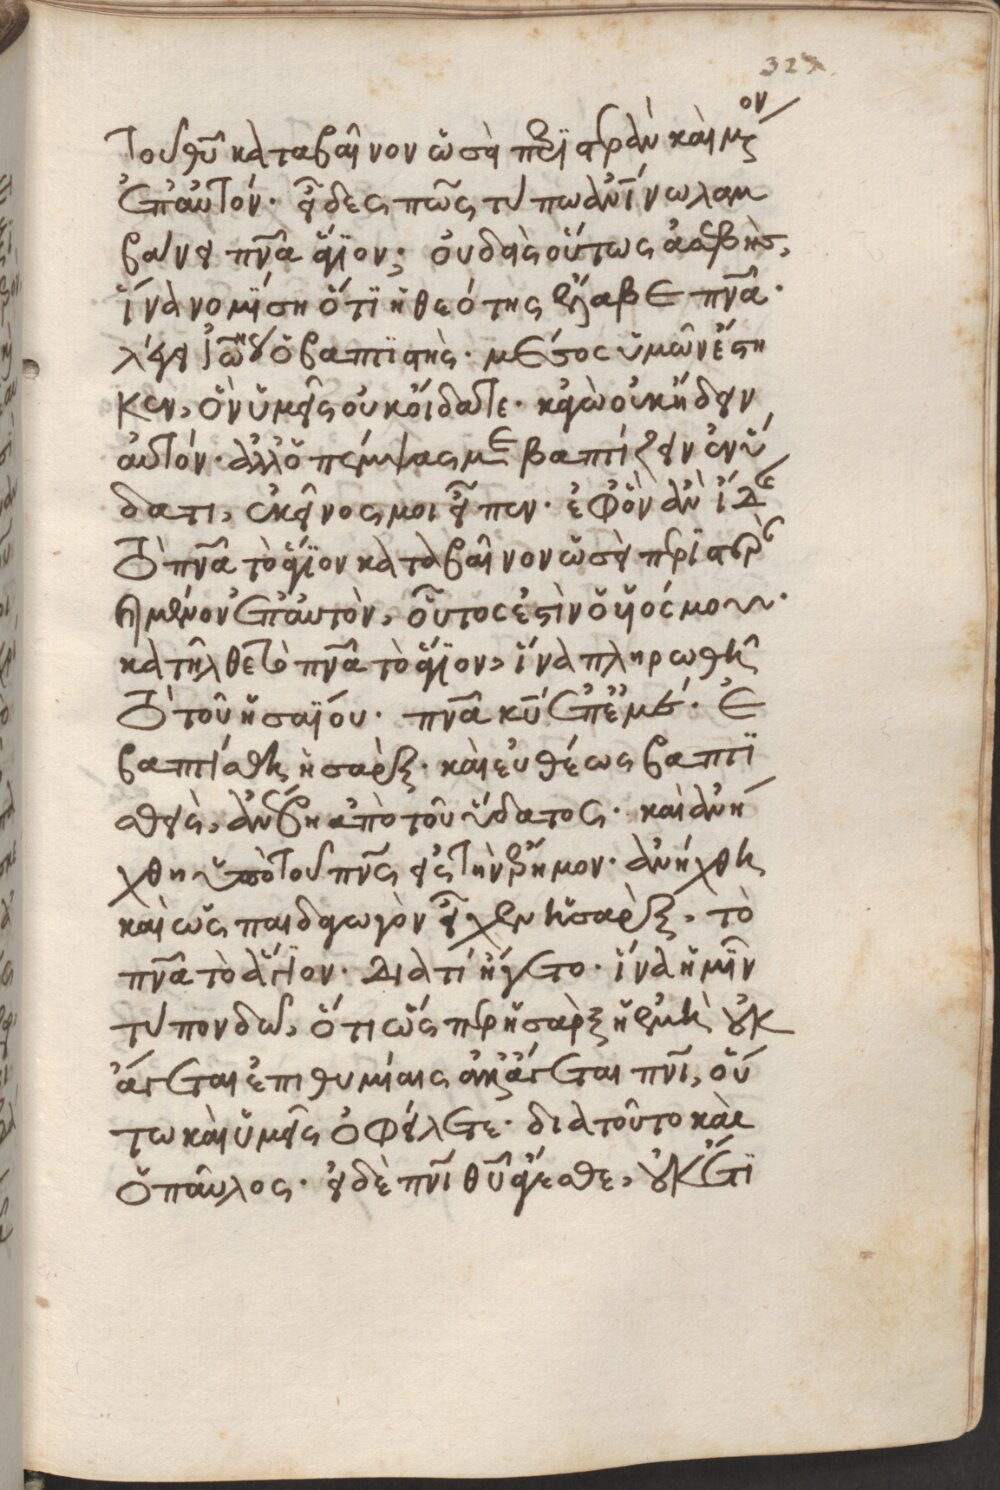 327
τοῦ θῦ καταβαῖνον ὡσεὶ περιστερὰν καὶ μένον
ἐπ' αὐτόν. εἶδες πῶς τύπω ἀνθρωπίνω λαμ
βάνει πνᾶ ἅγϊον; οὐδεὶς οὕτως ἀσεβὴς,
ἵνα νομίση ὅτϊ ἡ θεότης ἔλαβε πνᾶ.
λέγει ἰωάννης ὁ βαπτϊστής. μέσος ὑμῶν ἕστη
κεν, ὃν ὑμεῖς οὐκ οἴδατε. κἀγὼ οὐκ ἤδειν
αὐτόν. ἀλλ' ὁ πέμψας με βαπτίζειν ἐν ὕ
δατι, ἐκεῖνος μοι εἶπεν. ἐφ' ὃν ἂν ἴδης
τὸ πνᾶ τὸ ἅγϊον καταβαῖνον ὡσεὶ περϊστερὰν
καὶ μένον ἐπ' αὐτὸν, οὗτος ἐστὶν ὁ υἱός μου.
κατῆλθε τὸ πνᾶ τὸ ἅγϊον, ἵνα πληρωθῆ
τὸ τοῦ ἡσαΐου. πνᾶ κῦ ἐπ' ἐμέ. ἐ
βαπτίσθη ἡ σὰρξ. καὶ εὐθέως βαπτϊ
σθεὶς, ἀνέβη ἀπὸ τοῦ ὕδατος. καὶ ἀνή
χθη ὑπὸ τοῦ πνς εἰς τὴν ἔρημον. ἀνήχθη
καὶ ὡς παιδαγωγὸν εἶχεν ἡ σὰρξ, τὸ
πνᾶ τὸ ἅγιον. διατί ἤγετο. ἵνα ἡμῖν
τύπον δῶ, ὅτι ὥσπερ ἡ σὰρξ ἡ ἐμὴ οὐκ
ἄγεται ἐπιθυμίαις ἀλλ' ἄγεται πνϊ, οὕ
τω καὶ ὑμεῖς ὀφείλετε. διατοῦτο καὶ
ὁ παῦλος. εἰ δὲ πνϊ θῦ ἄγεσθε, οὐκ ἔτϊ